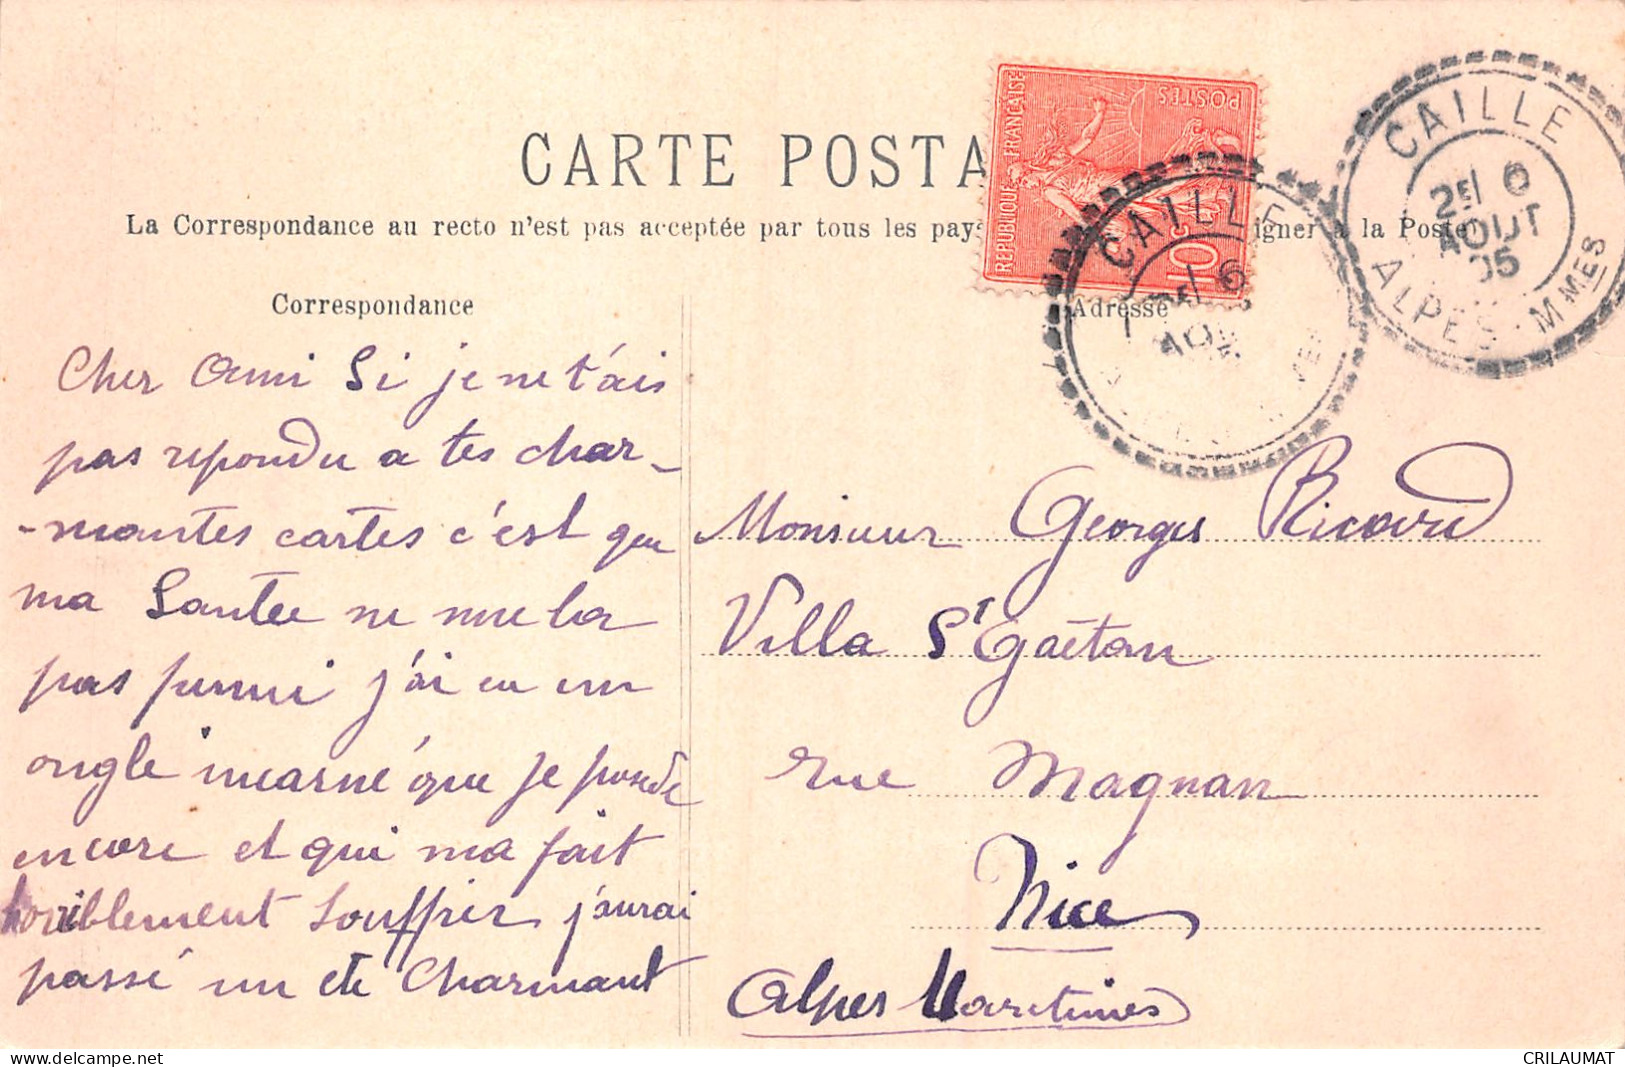 CARTE POSTA
La Correspondance au recto n'est pas acceptée par tous les pays
igner à la Poste
REPUBLIQUE FRANÇAISE
POSTES
10c
CAILLE
6
CAILLE
2E 6
AOUT
05
ALPES-MMES
Correspondance
Cher Ami Si je ne t'ais
pas repondu a tes char-
-mantes cartes c'est que
ma Santee ne me la
pas permi j'ai eu un
ongle incarné que je posede
encore et qui ma fait
horriblement Souffrir j'aurai
passé un été Charmant
Adresse
Monsieur Georges Ricard
Villa St Gaëtan
rue Magnan
Nice
Alpes Maritimes
delcampe.net
CRILAUMAT